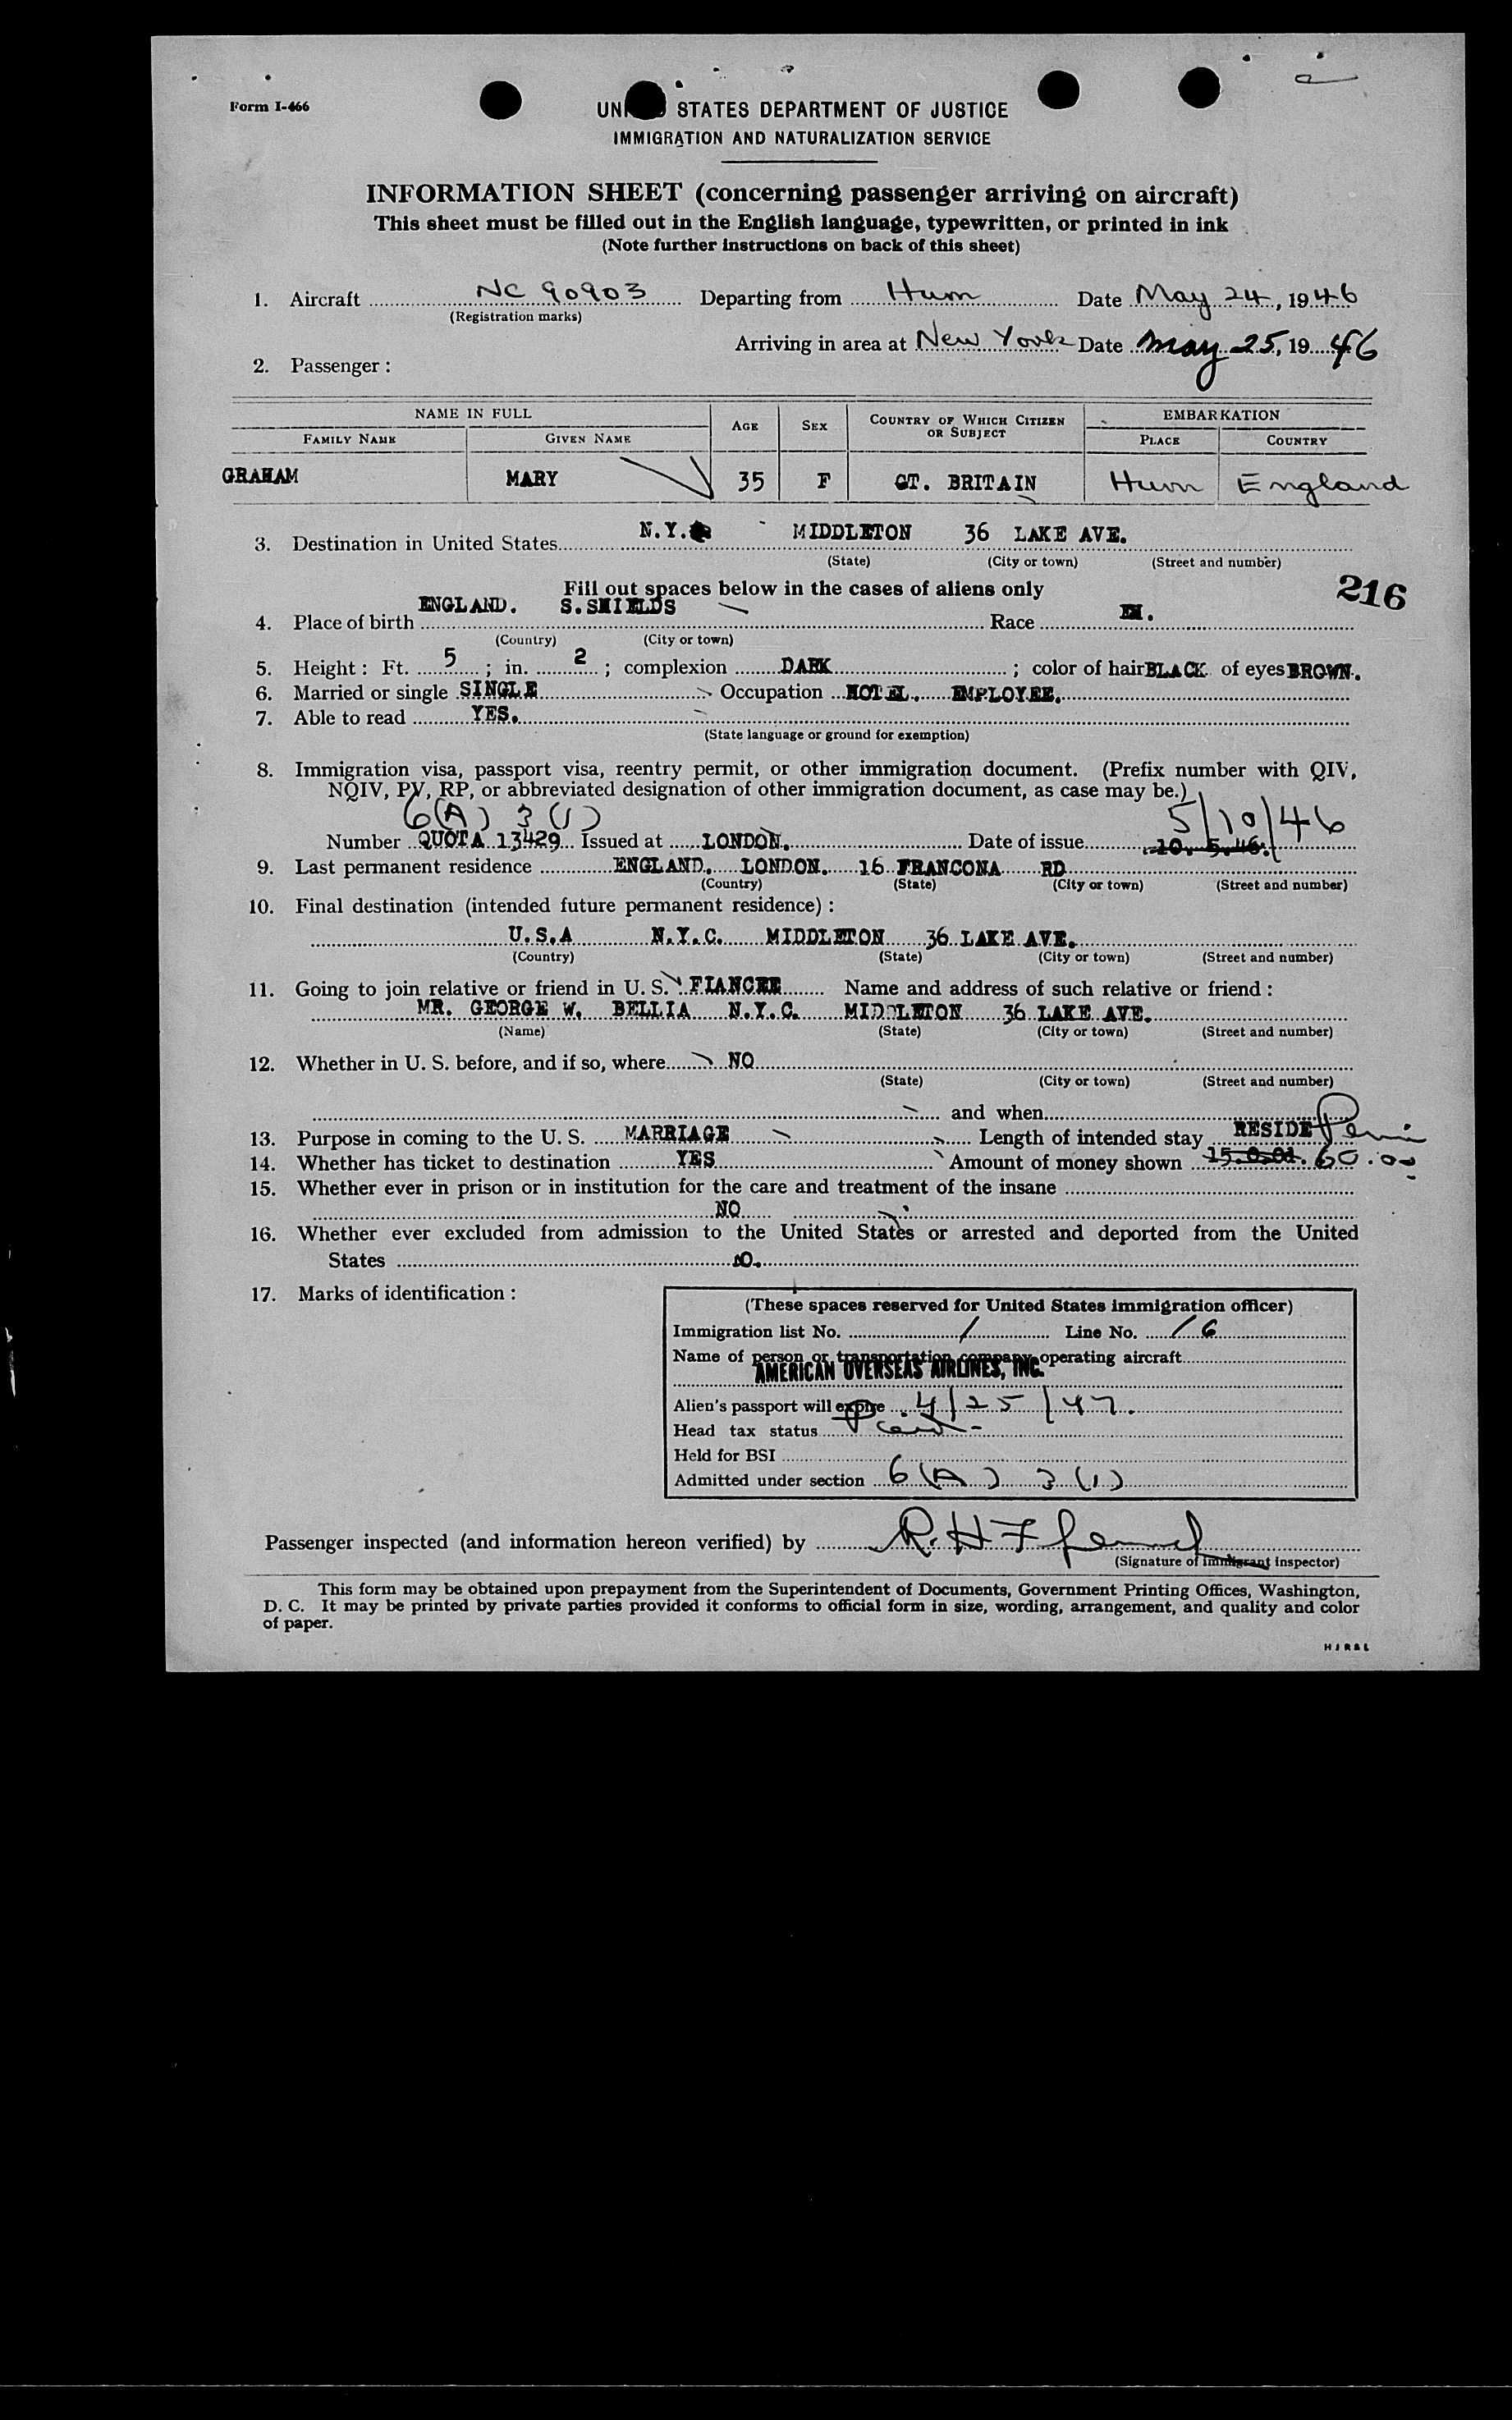 Form I-466
UN STATES DEPARTMENT OF JUSTICE
IMMIGRATION AND NATURALIZATION SERVICE
INFORMATION SHEET (concerning passenger arriving on aircraft)
This sheet must be filled out in the English language, typewritten, or printed in ink
(Note further instructions on back of this sheet)
1. Aircraft NC 90903 Departing from Hurn Date May 24, 1946
(Registration marks)
Arriving in area at New York Date May 25, 1946
2. Passenger:
NAME IN FULL AGE SEX COUNTRY OF WHICH CITIZEN OR SUBJECT EMBARKATION
FAMILY NAME GIVEN NAME PLACE COUNTRY
GRAHAM MARY 35 F GT. BRITAIN Hurn England
3. Destination in United States N.Y. MIDDLETON 36 LAKE AVE.
(State) (City or town) (Street and number)
Fill out spaces below in the cases of aliens only
216
4. Place of birth ENGLAND. S.SHIELDS Race
(Country) (City or town)
5. Height: Ft. 5; in. 2; complexion DARK; color of hair BLACK of eyes BROWN.
6. Married or single SINGLE Occupation HOTEL. EMPLOYEE.
7. Able to read YES.
(State language or ground for exemption)
8. Immigration visa, passport visa, reentry permit, or other immigration document. (Prefix number with QIV,
NQIV, PV, RP, or abbreviated designation of other immigration document, as case may be.)
6(A) 3(1) 5/10/46
Number QUOTA 13429 Issued at LONDON. Date of issue 10. 5.46.
9. Last permanent residence ENGLAND. LONDON. 16 FRANCONA RD
(Country) (State) (City or town) (Street and number)
10. Final destination (intended future permanent residence):
U.S.A N.Y.C. MIDDLETON 36 LAKE AVE.
(Country) (State) (City or town) (Street and number)
11. Going to join relative or friend in U. S. FIANCEE Name and address of such relative or friend:
MR. GEORGE W. BELLIA N.Y.C. MIDDLETON 36 LAKE AVE.
(Name) (State) (City or town) (Street and number)
12. Whether in U. S. before, and if so, where NO
(State) (City or town) (Street and number)
and when
13. Purpose in coming to the U. S. MARRIAGE Length of intended stay RESIDE
14. Whether has ticket to destination YES Amount of money shown 60.00
15. Whether ever in prison or in institution for the care and treatment of the insane
NO
16. Whether ever excluded from admission to the United States or arrested and deported from the United
States NO.
17. Marks of identification:
(These spaces reserved for United States immigration officer)
Immigration list No. 1 Line No. 16
Name of person or transportation company operating aircraft
AMERICAN OVERSEAS AIRLINES, INC.
Alien's passport will expire 4/25/47.
Head tax status Paid-
Held for BSI
Admitted under section 6(A) 3(1)
Passenger inspected (and information hereon verified) by R. H
(Signature of immigrant inspector)
This form may be obtained upon prepayment from the Superintendent of Documents, Government Printing Offices, Washington,
D. C. It may be printed by private parties provided it conforms to official form in size, wording, arrangement, and quality and color
of paper.